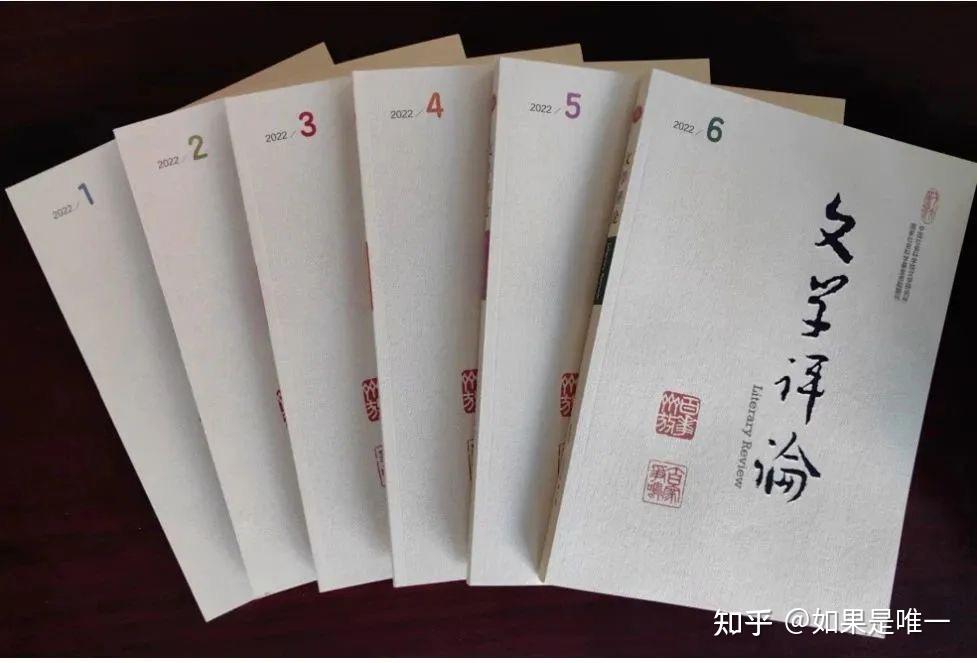 2022/1
2022/2
2022/3
2022/4
2022/5
2022/6
文学评论
Literary Review
百花齐放
百家争鸣
知乎 @如果是唯一